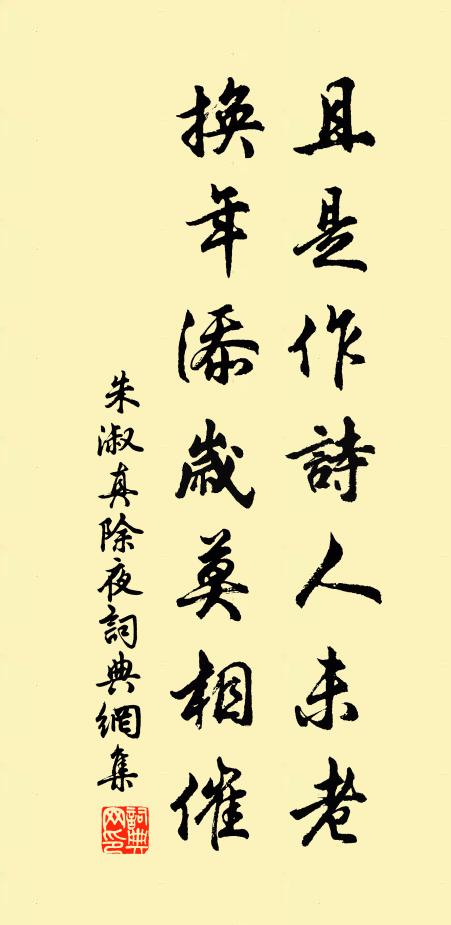 且是作詩人未老
換年添歲莫相催
朱淑真除夜詞典網集
詞典網印